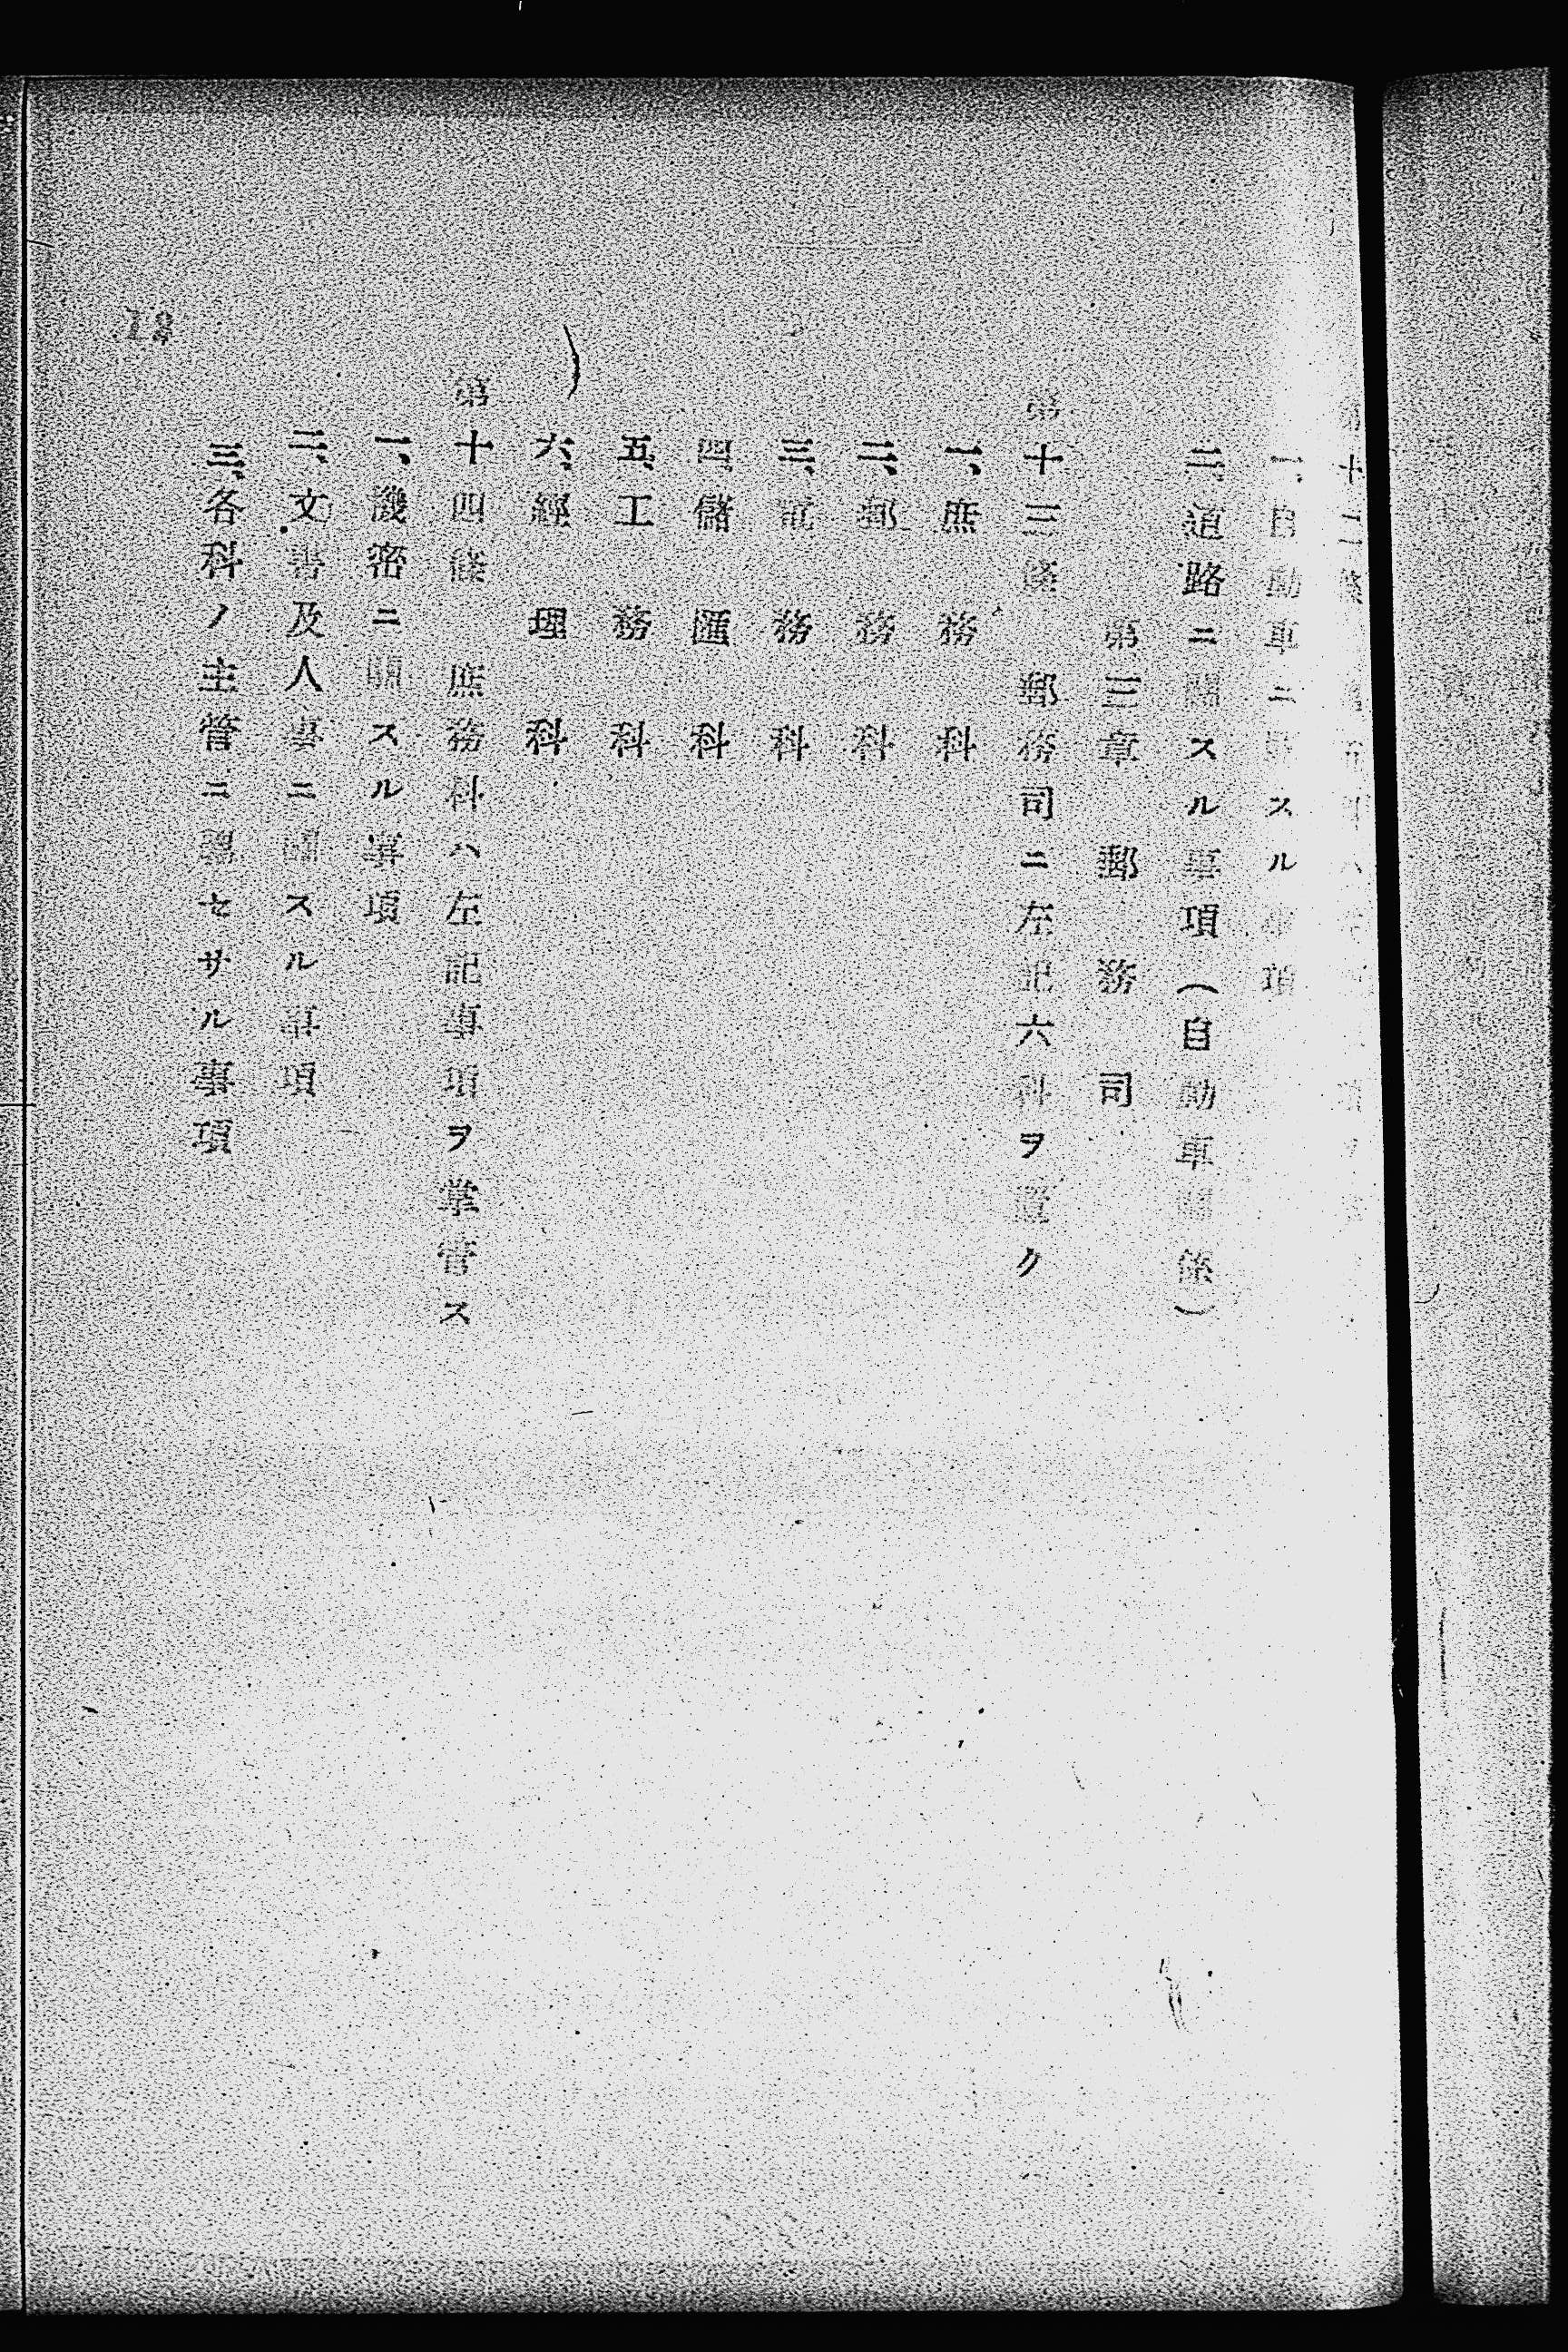 一、自動車ニ關スル事項
二、道路ニ關スル事項(自動車關係)
第三章 郵務司
第十三條 郵務司ニ左記六科ヲ置ク
一、庶務科
二、郵務科
三、電務科
四、儲匯科
五、工務科
六、經理科
第十四條 庶務科ハ左記事項ヲ掌管ス
一、機密ニ關スル事項
二、文書及人事ニ關スル事項
三、各科ノ主管ニ屬セサル事項
12